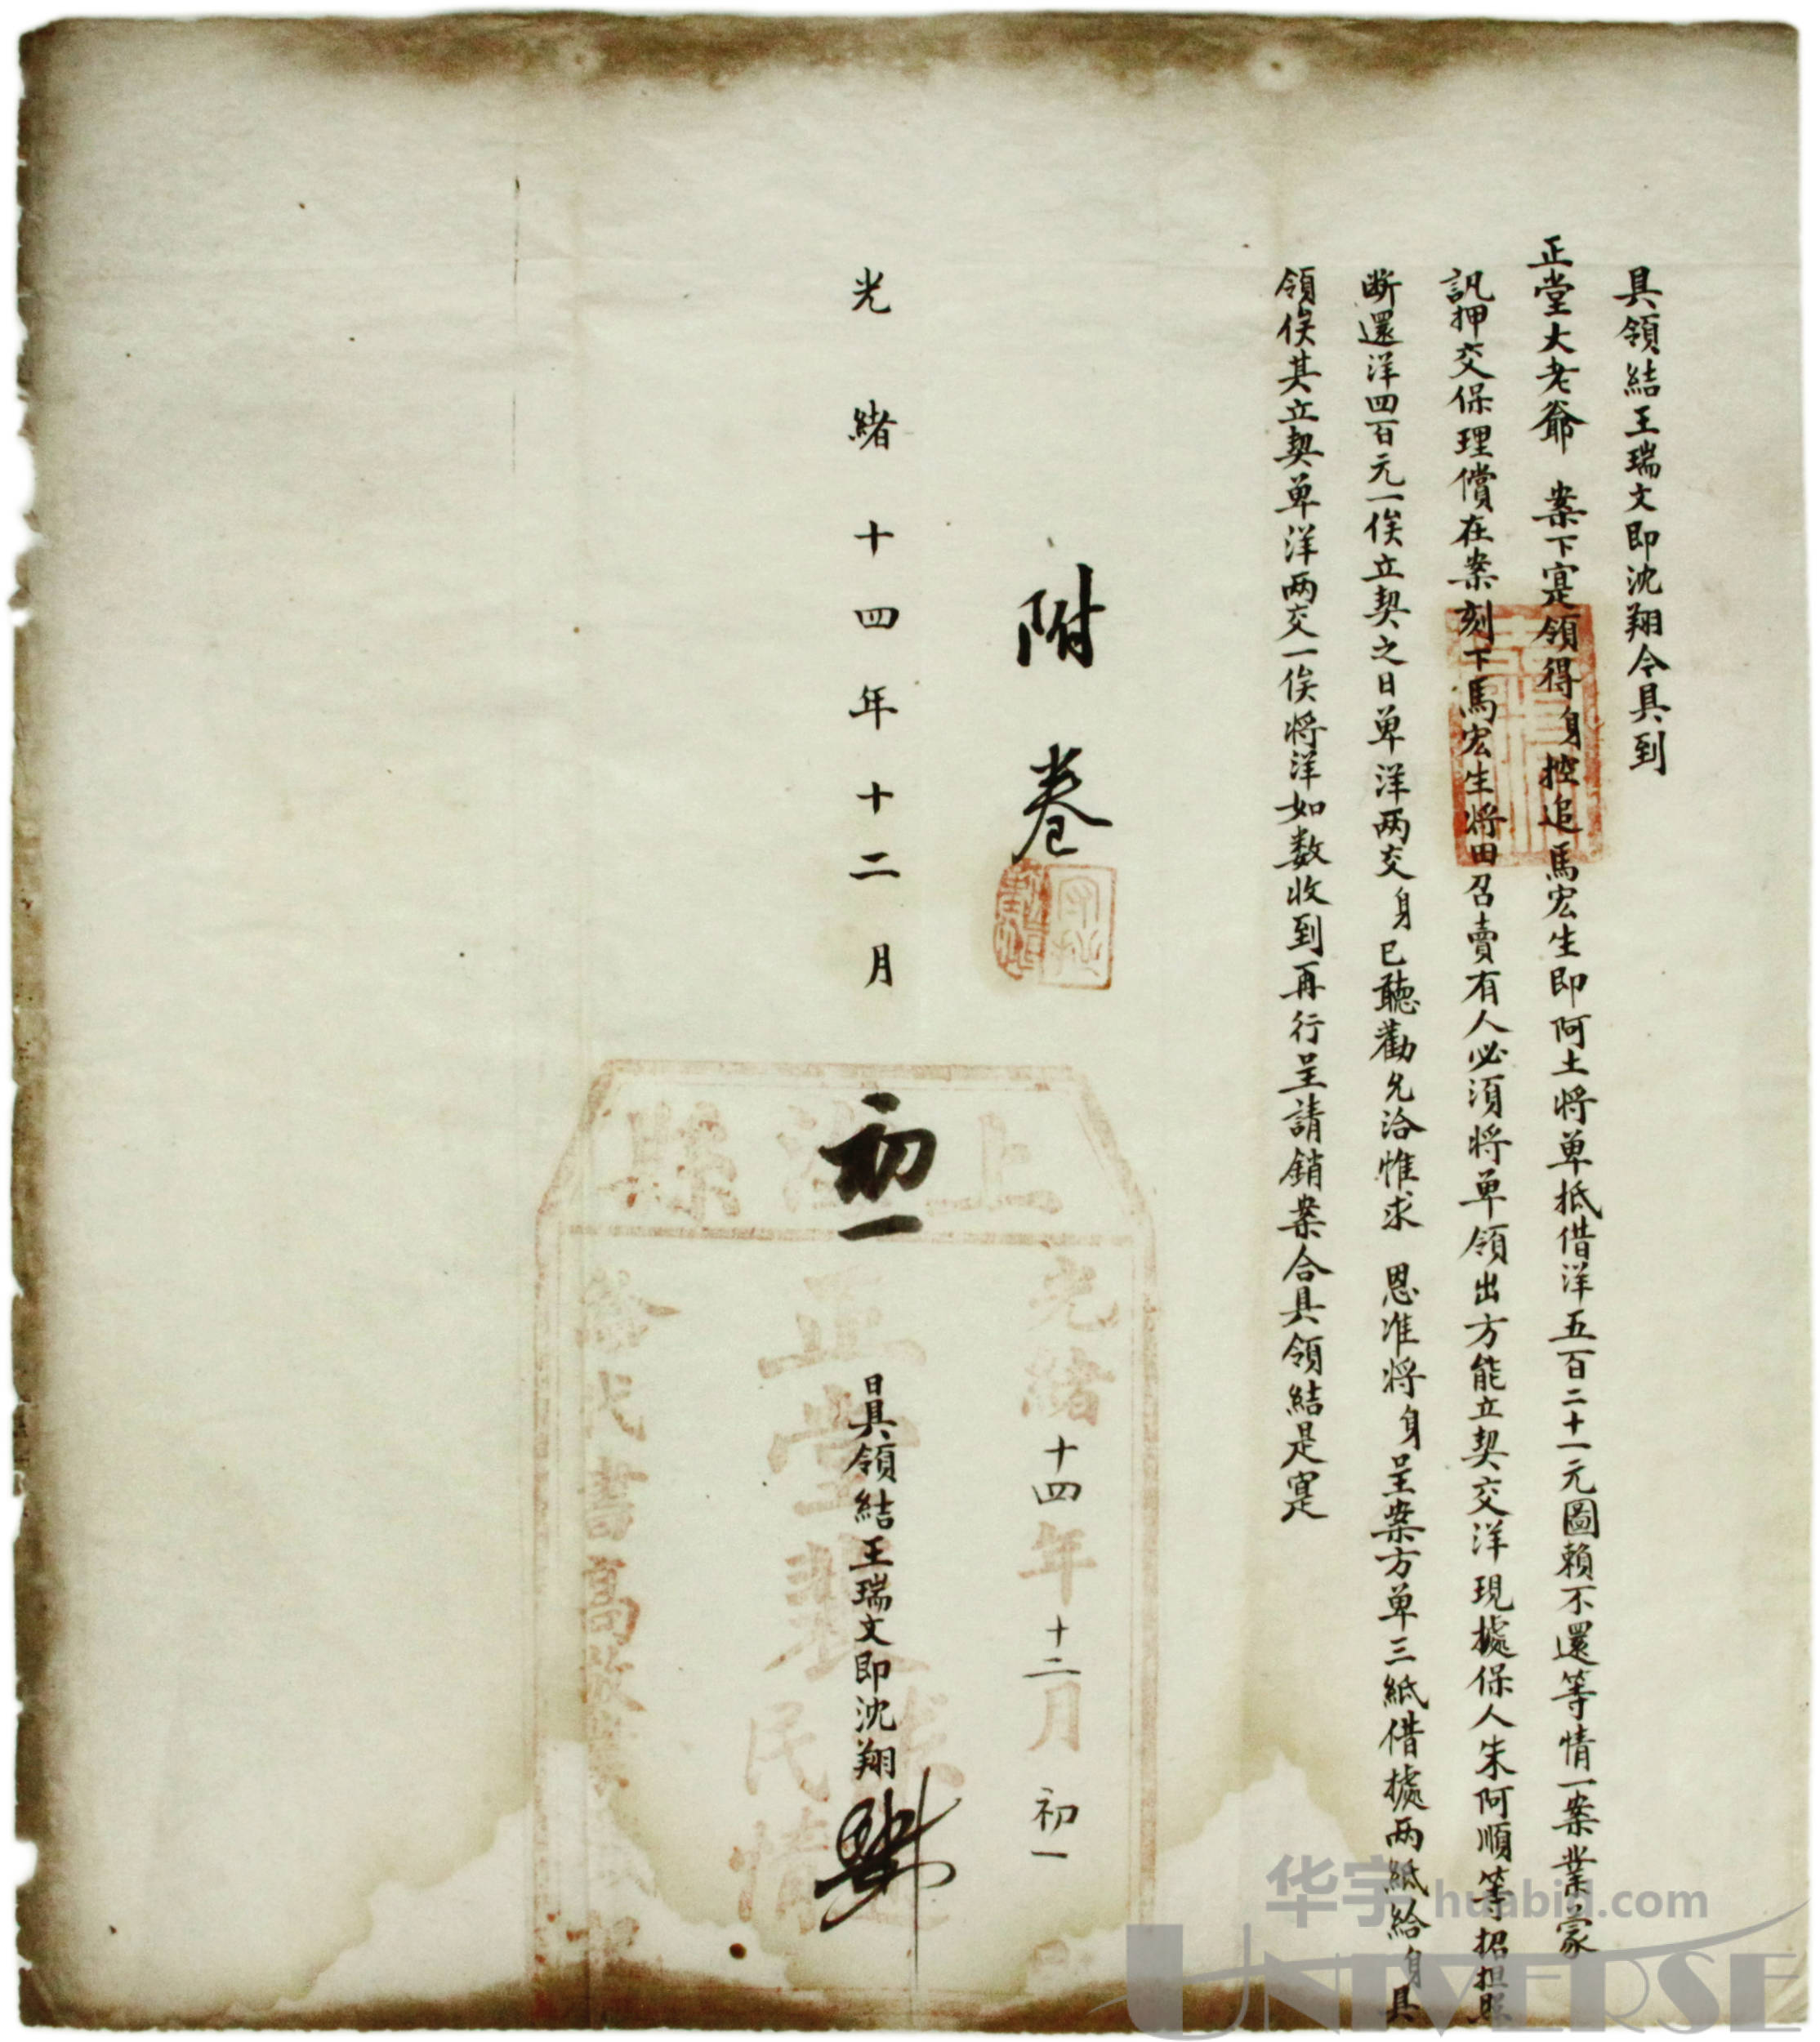 具領結王瑞文即沈翔今具到
正堂大老爺 案下寔領得身控追馬宏生即阿土將单抵借洋五百二十一元圖賴不還等情一案業蒙
訊押交保理償在案刻下馬宏生將田召賣有人必須將单領出方能立契交洋現據保人朱阿順等招担照
断還洋四百元一俟立契之日单洋两交身已聽勸允洽惟求 恩准將身呈案方单三紙借據两紙給身具
領俟其立契单洋两交一俟將洋如数收到再行呈請銷案合具領結是寔
附卷
光緒十四年十二月初一日具領結王瑞文即沈翔
上海縣
光緒十四年十二月初一
正堂裴
民情
給代書高
华宇 huabid.com
UNIVERSE